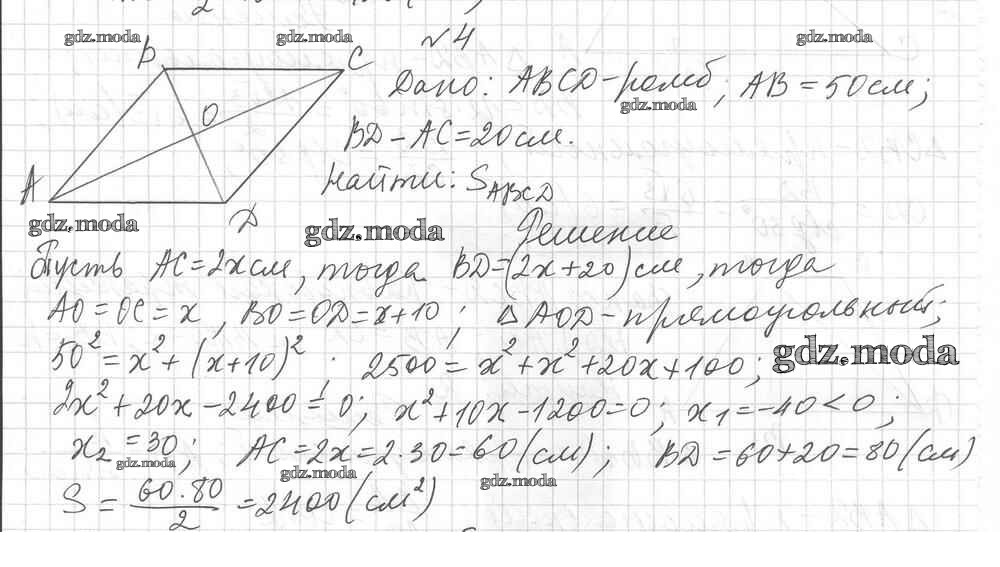 gdz.moda gdz.moda gdz.moda
№4
B C
Дано: ABCD - ромб, AB = 50 см;
gdz.moda
O
BD - AC = 20 см.
A
Найти: S_ABCD
D
gdz.moda gdz.moda
Решение
Пусть AC = 2x см, тогда BD = (2x + 20) см, тогда
AO = OC = x, BO = OD = x + 10; △AOD - прямоугольный;
50² = x² + (x + 10)²; 2500 = x² + x² + 20x + 100;
gdz.moda
2x² + 20x - 2400 = 0; x² + 10x - 1200 = 0; x₁ = -40 < 0;
x₂ = 30; AC = 2x = 2·30 = 60 (см); BD = 60 + 20 = 80 (см)
gdz.moda gdz.moda gdz.moda
S = 60·80/2 = 2400 (см²)